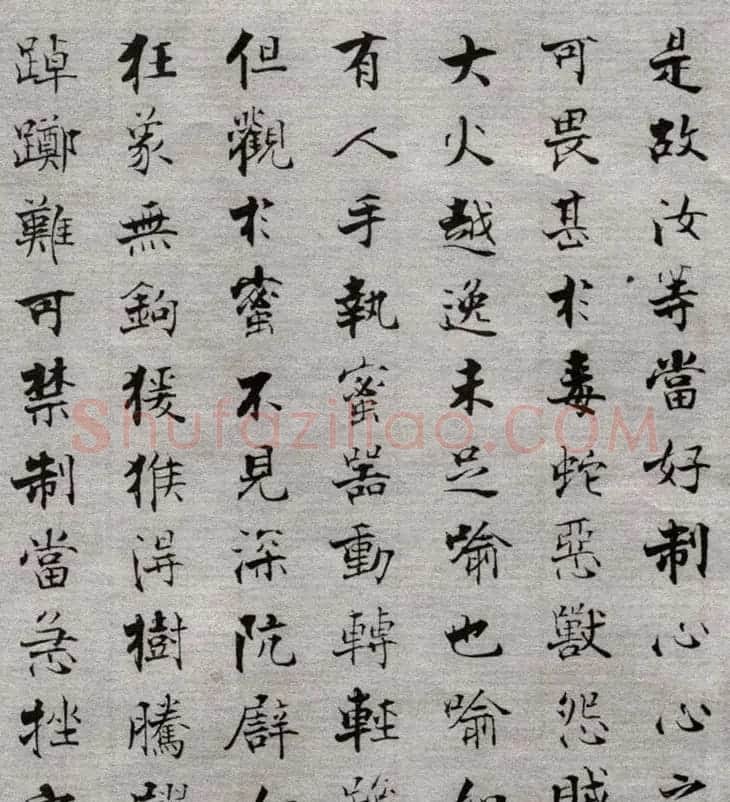 是故汝等當好制心心之
可畏甚於毒蛇惡獸怨賊
大火越逸未足喻也喻如
有人手執蜜器動轉輕躁
但觀於蜜不見深阬譬如
狂象無鉤猨猴得樹騰躍
踔躑難可禁制當急挫之
Shufaziliao.COM